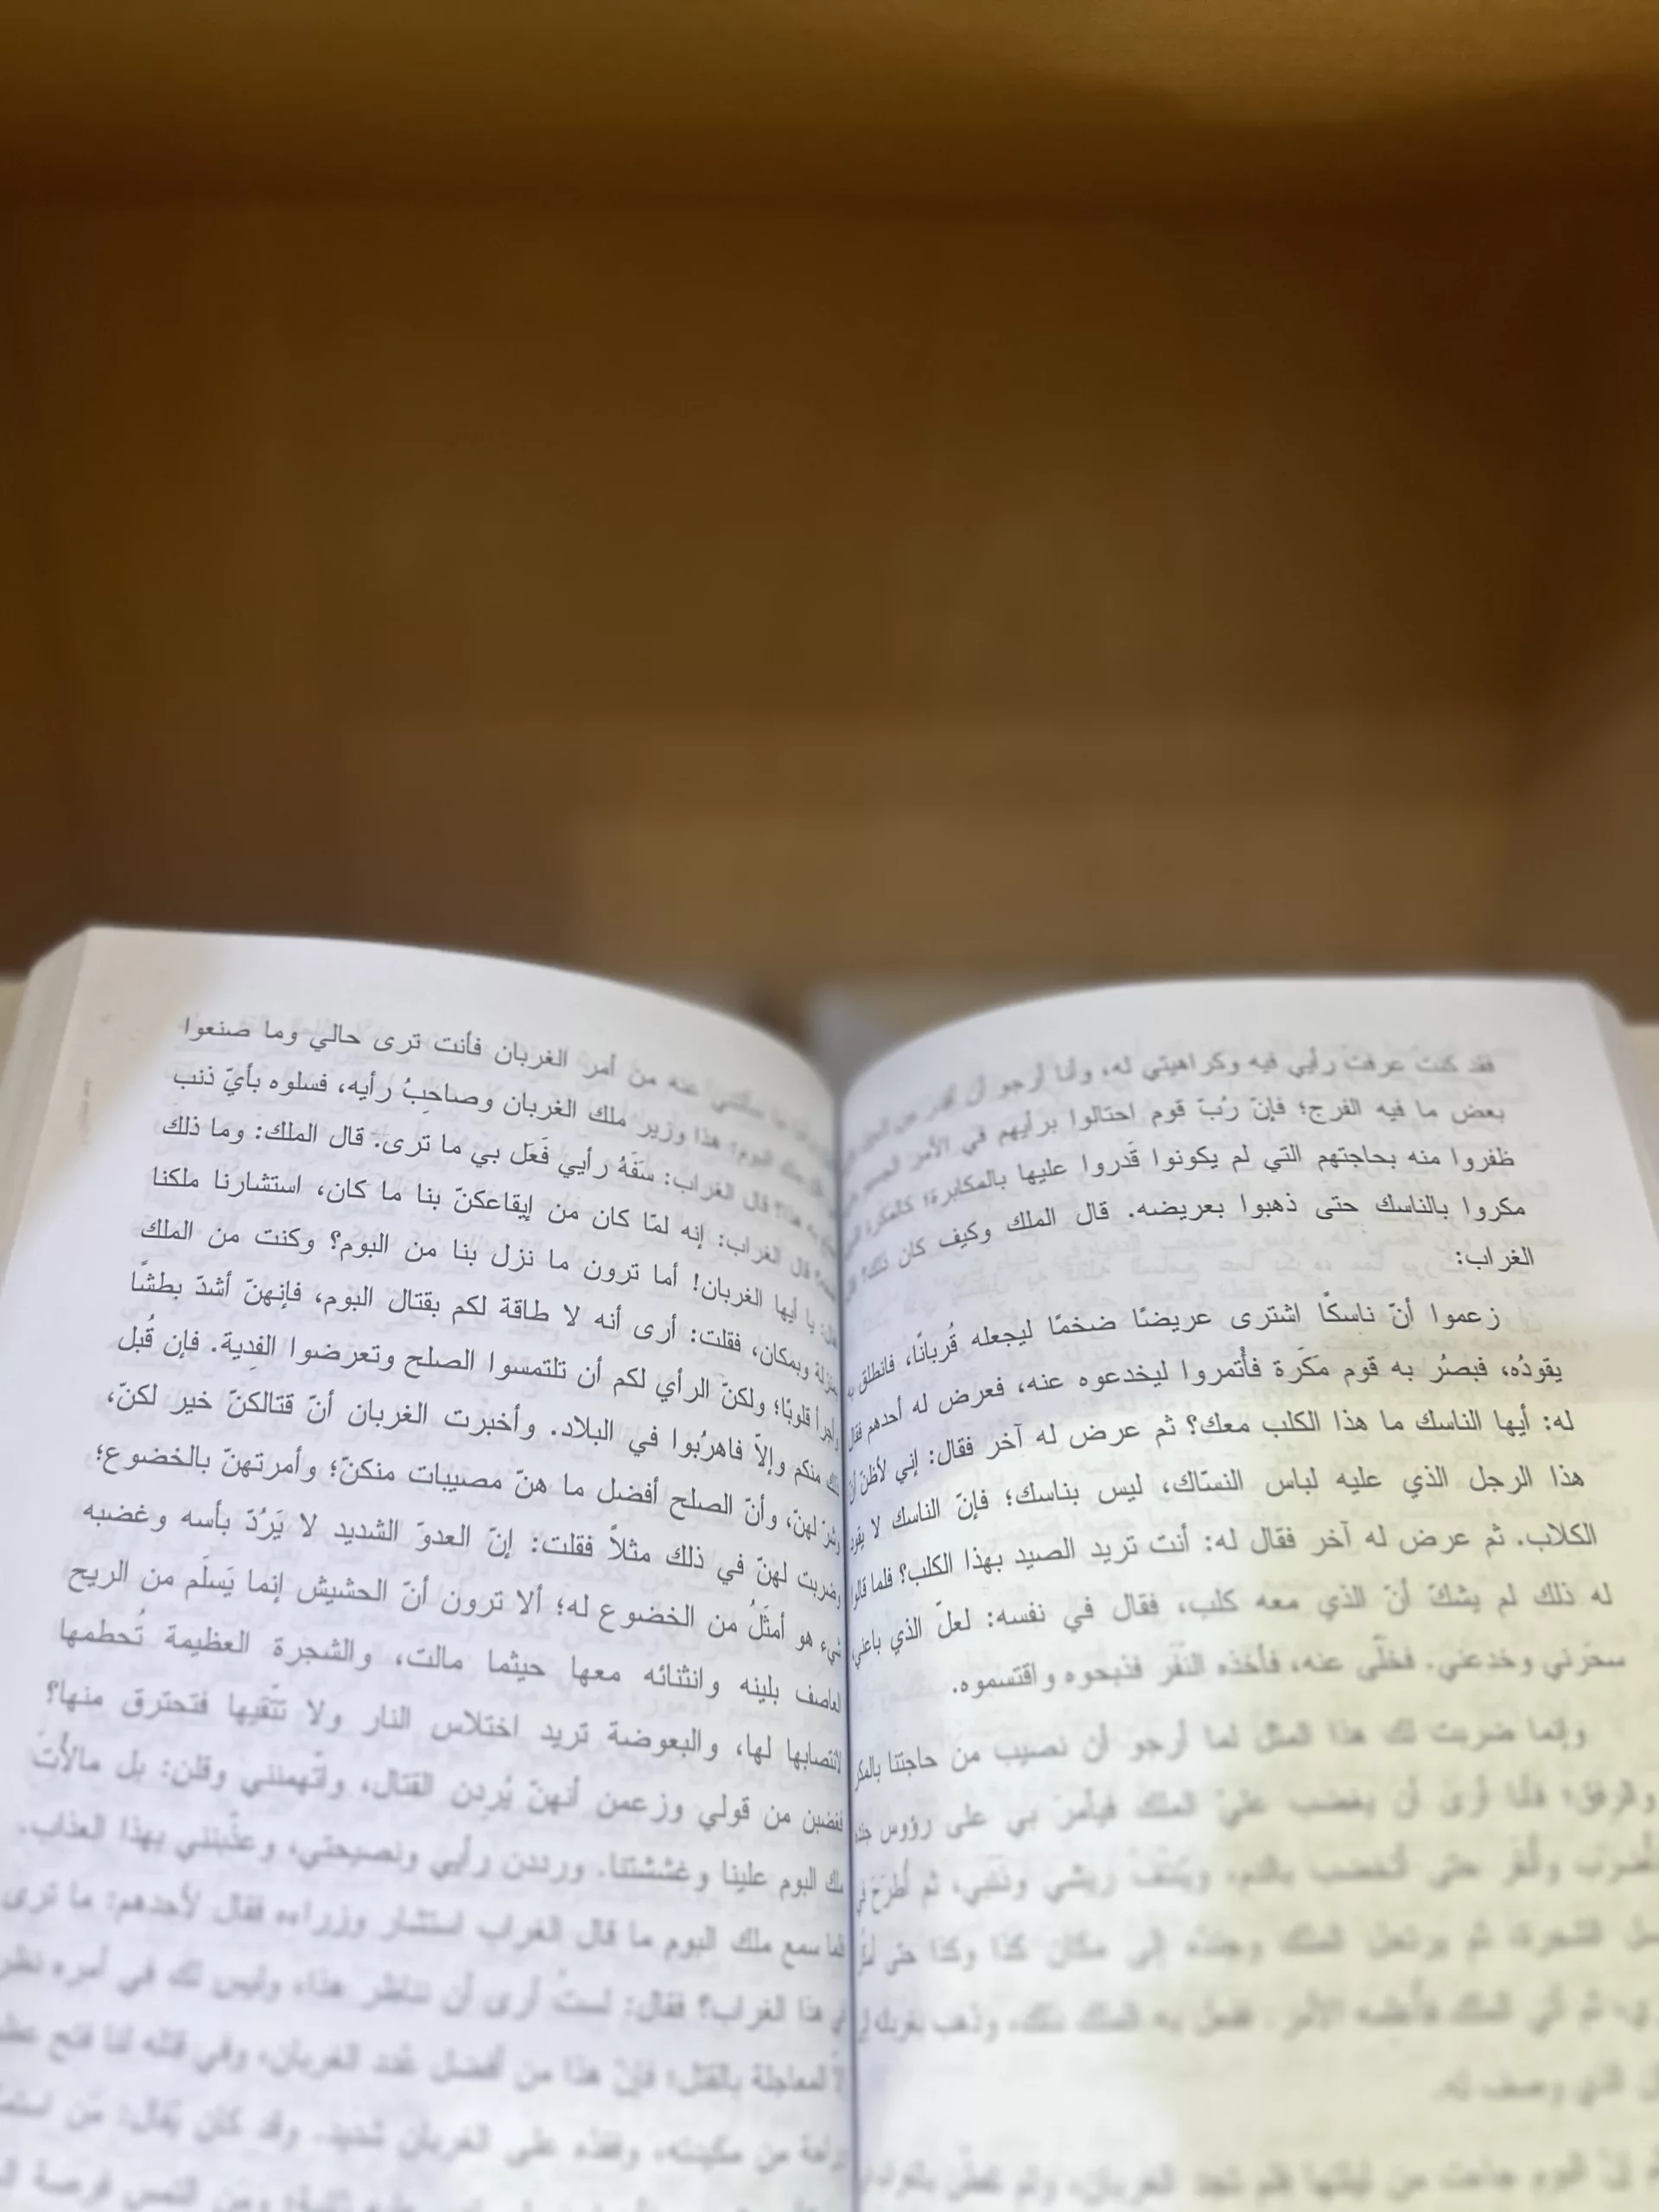 فقد كنتُ عرفتَ رأيي فيه وكراهيتي له، وأنا أرجو أن أقدر من
بعض ما فيه الفرج؛ فإنّ رُبّ قوم احتالوا برأيهم في الأمر
ظفروا منه بحاجتهم التي لم يكونوا قَدروا عليها بالمكابرة؛ كالمكرة
مكروا بالناسك حتى ذهبوا بعريضه. قال الملك وكيف كان ذلك؟
الغراب:
زعموا أنّ ناسكًا اشترى عريضًا ضخمًا ليجعله قُربانًا، فانطلق به
يقودُه، فبصُر به قوم مَكَرة فأْتمروا ليخدعوه عنه، فعرض له أحدهم فقال
له: أيها الناسك ما هذا الكلب معك؟ ثم عرض له آخر فقال: إني لأظنّ أن
هذا الرجل الذي عليه لباس النسّاك، ليس بناسك؛ فإنّ الناسك لا يقود
الكلاب. ثم عرض له آخر فقال له: أنت تريد الصيد بهذا الكلب؟ فلما قالوا
له ذلك لم يشكّ أنّ الذي معه كلب، فقال في نفسه: لعلّ الذي باعني
سحَرني وخدعني. فخلّى عنه، فأخذه النّفَر فذبحوه واقتسموه.
وإنما ضربت لك هذا المثل لما أرجو أن نصيب من حاجتنا بالمكر
والرفق؛ فأنا أرى أن يغضب عليّ الملك فيأمرَ بي على رؤوس جنده
حتى أتخضب بالدم، ويُنتَفُ ريشي وذنَبي، ثم أُطرَحَ في
الشجرة، ثم يرتحل الملك وجنده إلى مكان كذا وكذا حتى
ثم آتي الملك فأُعلمه الأمر. ففعل به الملك ذلك، وذهب بغربانه إلى
الذي وصف له.
البوم جاءت من ليلتها فلم تجد الغربان، ولم تفطن
عنه من أمر الغربان فأنت ترى حالي وما صنعوا
ملك البوم: هذا وزير ملك الغربان وصاحِبُ رأيه، فسلوه بأيّ ذنب
هذا؟ قال الغراب: سَفَهُ رأيي فَعَل بي ما ترى. قال الملك: وما ذلك
قال الغراب: إنه لمّا كان من إيقاعكنّ بنا ما كان، استشارنا ملكنا
يا أيها الغربان! أما ترون ما نزل بنا من البوم؟ وكنت من الملك
بمنزلة وبمكان، فقلت: أرى أنه لا طاقة لكم بقتال البوم، فإنهنّ أشدّ بطشًا
وأجرأ قلوبًا؛ ولكنّ الرأي لكم أن تلتمسوا الصلح وتعرضوا الفِدية. فإن قُبل
ذلك منكم وإلاّ فاهرُبوا في البلاد. وأخبرت الغربان أنّ قتالكنّ خير لكنّ،
وشرّ لهنّ، وأنّ الصلح أفضل ما هنّ مصيبات منكنّ؛ وأمرتهنّ بالخضوع؛
وضربت لهنّ في ذلك مثلاً فقلت: إنّ العدوّ الشديد لا يَرُدّ بأسه وغضبه
شيء هو أمثَلُ من الخضوع له؛ ألا ترون أنّ الحشيش إنما يَسلَم من الريح
العاصف بلينه وانثنائه معها حيثما مالت، والشجرة العظيمة تُحطمها
لانتصابها لها، والبعوضة تريد اختلاس النار ولا تتّقيها فتحترق منها؟
فغضبن من قولي وزعمن أنهنّ يُرِدن القتال، واتّهمنني وقلن: بل مالأْتَ
ملك البوم علينا وغششتنا. ورددن رأيي ونصيحتي، وعذّبنني بهذا العذاب.
فلما سمع ملك البوم ما قال الغراب استشار وزراءه فقال لأحدهم: ما ترى
في هذا الغراب؟ فقال: لستُ أرى أن نناظر هذا، وليس لك في أمره نظر
إلاّ المعاجلة بالقتل؛ فإنّ هذا من أفضل عُدد الغربان، وفي قتله لنا فتح
راحة من مكيدته، وفقدُه على الغربان شديد. وقد كان يُقال: مَن
ومَن التمس فرصة